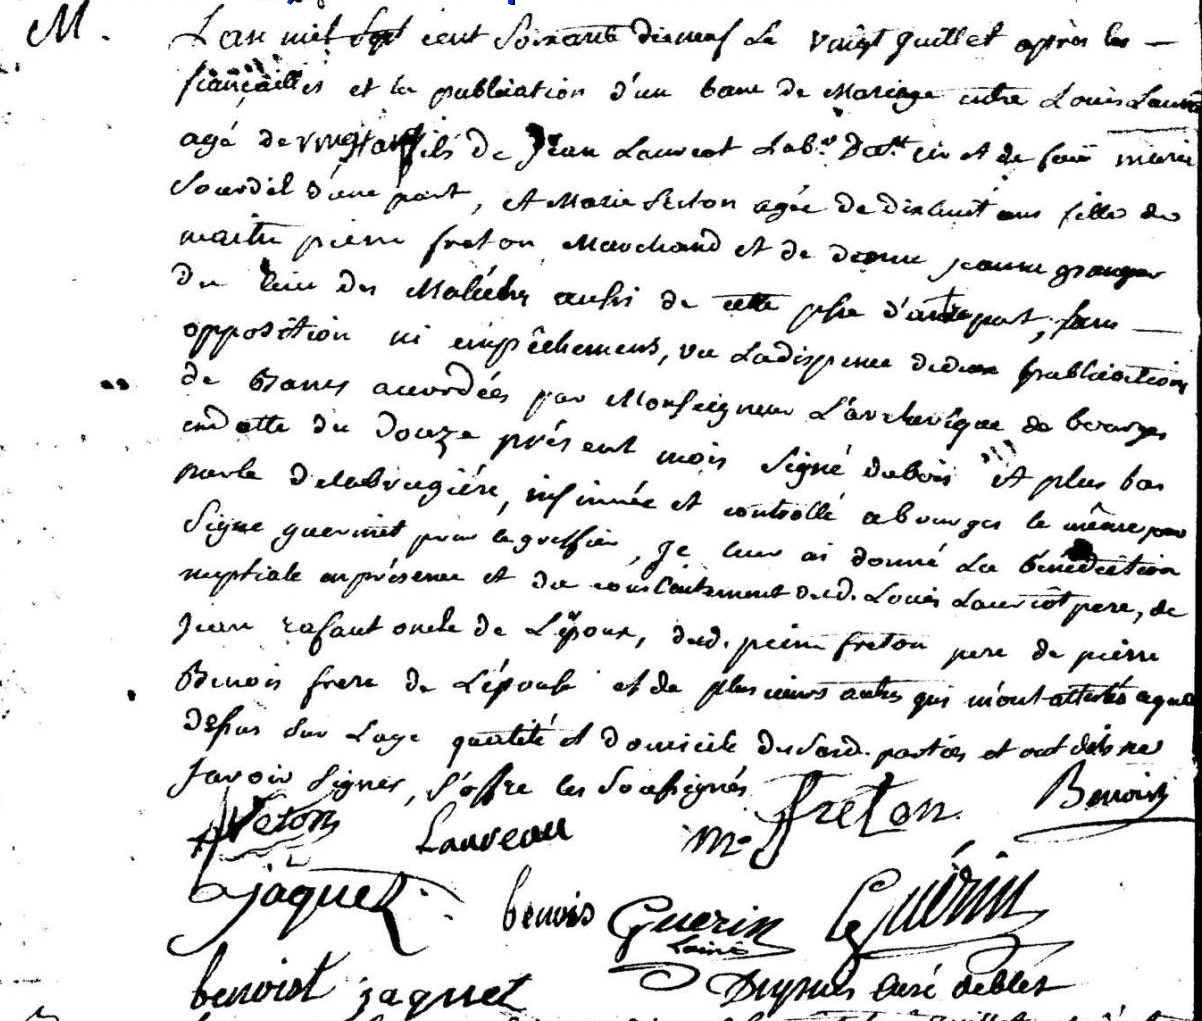 M.
L'an mil sept cent soixante dixneuf le vaingt Juillet après les
fiançailles et la publication d'un banc de Mariage entre Louis Laureo
agé de vingt ans fils de Jean Laureot Lab.r Da.tt en et de feüe marie
Sourdil d'une part, et Marie Freton agée de dixhuit ans fille de
maitre pierre freton Marchand et de dame jeanne granger
du lieu des aussi de cette psse d'autre part, sans
opposition ni empêchement, vu La dispense de deux publications
de Bancs accordées par Monseigneur L'archevêque de bourges
en datte du Douze présent mois signé dubois et plus bas
par le Delabrugiére, insinuée et controllé a bourges le même jour
Signé guerinet pour le greffier, Je leur ai donné La bénédiction
nuptiale en présence et du consentement dud. Louis Lauriot pere, de
Jean rafaut oncle de L'époux, dud. pierre freton pere de pierre
Benois frere de L'épouse et de plusieurs autres qui m'ont attestés a que
dessus sur L'age qualité et domicile desd. parties et ont déclaré
savoir signer, s'offre les Soussignés
freton Laureau M. freton Benoist
jaquet benois Guerin Lainé Guérin
benoist jaquet Dupuis Curé deblet